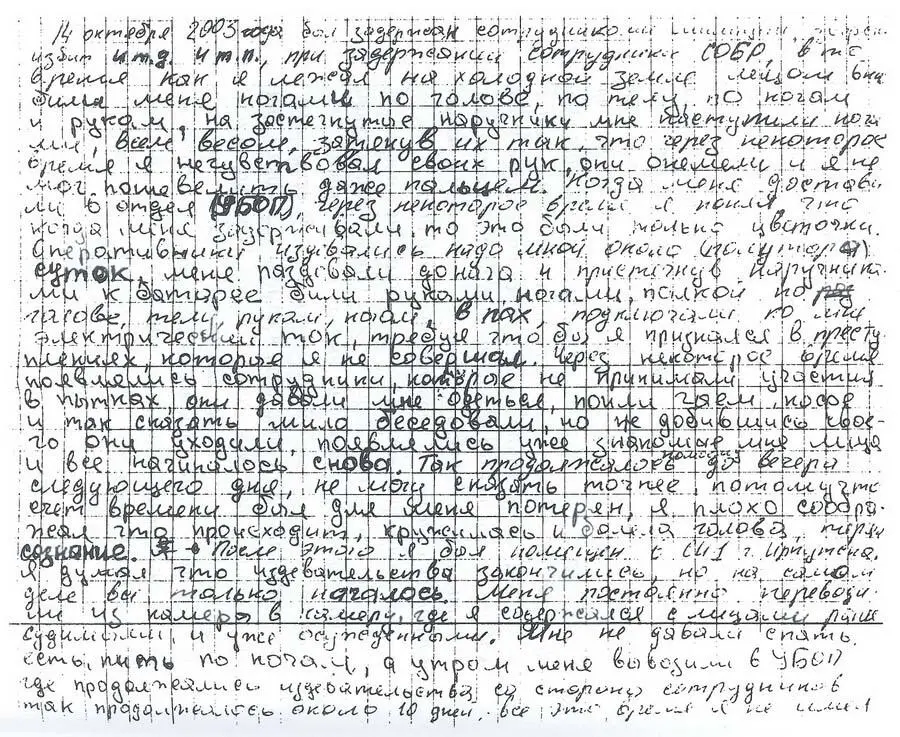 14 октября 2003 года был задержан сотрудниками милиции,
избит и.т.д. и т.п., при задержании сотрудники СОБР, в то
время как я лежал на холодной земле лицом вни
били меня ногами по голове, по телу, по ногам
и рукам, на застегнутые наручники мне наступили нога
ми, всем весом, затянув их так, что через некоторое
время я нечувствовал своих рук, они онемели и я не
мог пошевелить даже пальцем. Когда меня достави
ли в отдел (УБОП), через некоторое время я понял что
когда меня задерживали, то это были только цветочки.
Оперативники издевались надо мной около (полутора)
суток, меня раздевали догола и пристегнув наручника
ми к батарее били руками, ногами, палкой по
голове, телу, рукам, ногам, в пах, подключали ко мне
электрический ток, требуя что бы я признался в престу
плениях, которые я не совершал. Через некоторое время
появлялись сотрудники, которые не принимали участия
в пытках, они давали мне одеться, поили чаем, кофе
и так сказать мило беседовали, но не добившись свое-
го они уходили, появлялись уже знакомые мне лица
и все начиналось снова. Так продолжалось до вечера
следующего дня, не могу сказать точнее, потому что
счет времени был для меня потерян, я плохо сообра-
жал что происходит, кружилась и болела голова, терял
сознание. После этого я был помещен в СИ1 г. Иркутска.
Я думал что издевательства закончились, но на самом
деле все только началось. Меня постоянно переводи-
ли из камеры в камеру, где я содержался с лицами ранее
судимыми, и уже осужденными. Мне не давали спать
есть, пить по ночам, а утром меня вывозили в УБОП
где продолжались издевательства со стороны сотрудников
так продолжалось около 10 дней, все это время я не имел